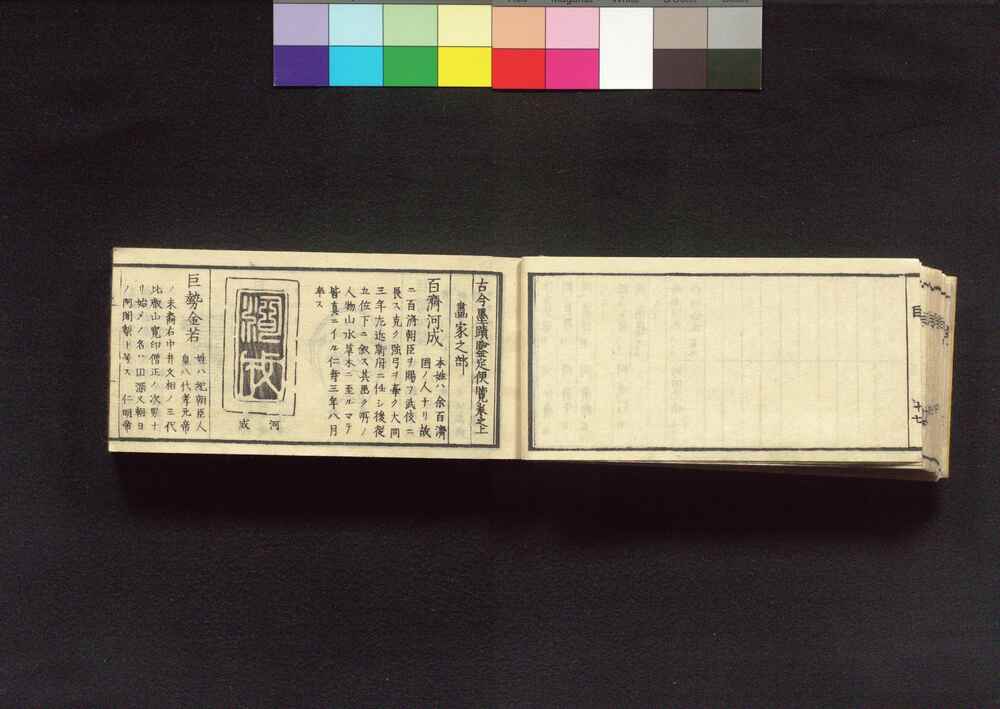 古今墨蹟鑒定便覧巻之上
畵家之部
百濟河成
本姓ハ余百濟
國ノ人ナリ故
ニ百濟朝臣ヲ賜フ武伎ニ
長ス克ク強弓ヲ牽ク大同
三年左近衛府ニ仕シ後従
五位下ニ叙ス其畵ク所ノ
人物山水草木ニ至ルマテ
皆真ニイル仁壽三年八月
卒ス
河成
河成
巨勢金岩
姓ハ紀朝臣人
皇八代孝元帝
ノ末裔右中弁文相ノ三代
比叡山寛印僧正ノ次男ナ
リ始メノ名ハ
ノ阿闍梨ト号ス仁明帝
目
十七